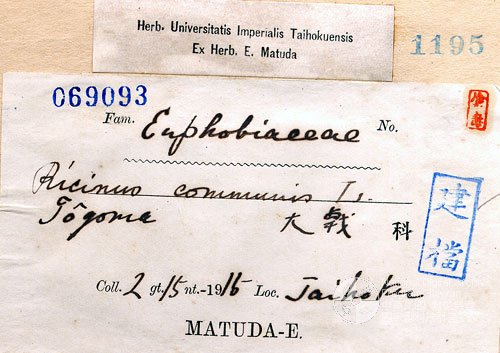 Herb. Universitatis Imperialis Taihokuensis
Ex Herb. E. Matuda
1195
069093
Fam. Euphobiaceae No.
Ricinus communis L.
Tôgoma 大戟 科
建檔
Coll. 2 gt. 15 nt.-1916 Loc. Taihoku
MATUDA-E.